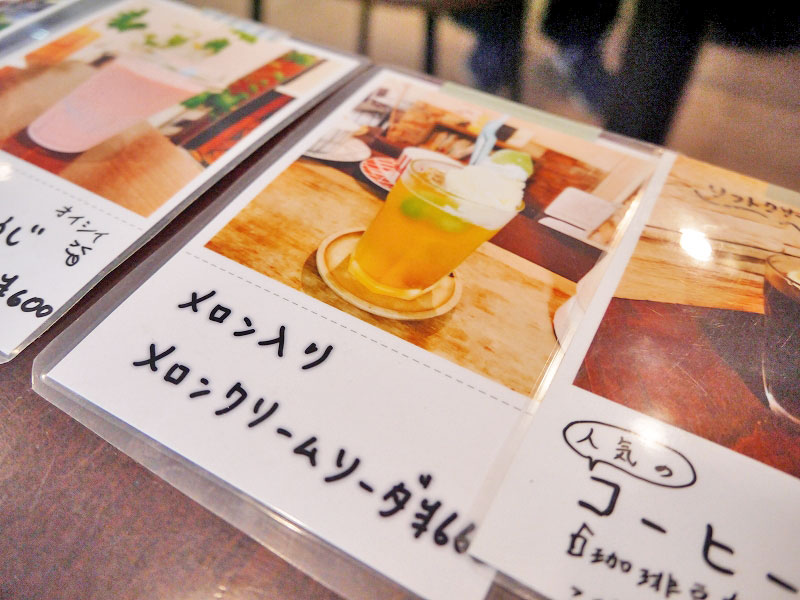 オイシイ
¥600
メロン入り
メロンクリームソーダ ¥66
ソフトクリ
人気の
コーヒー
珈琲